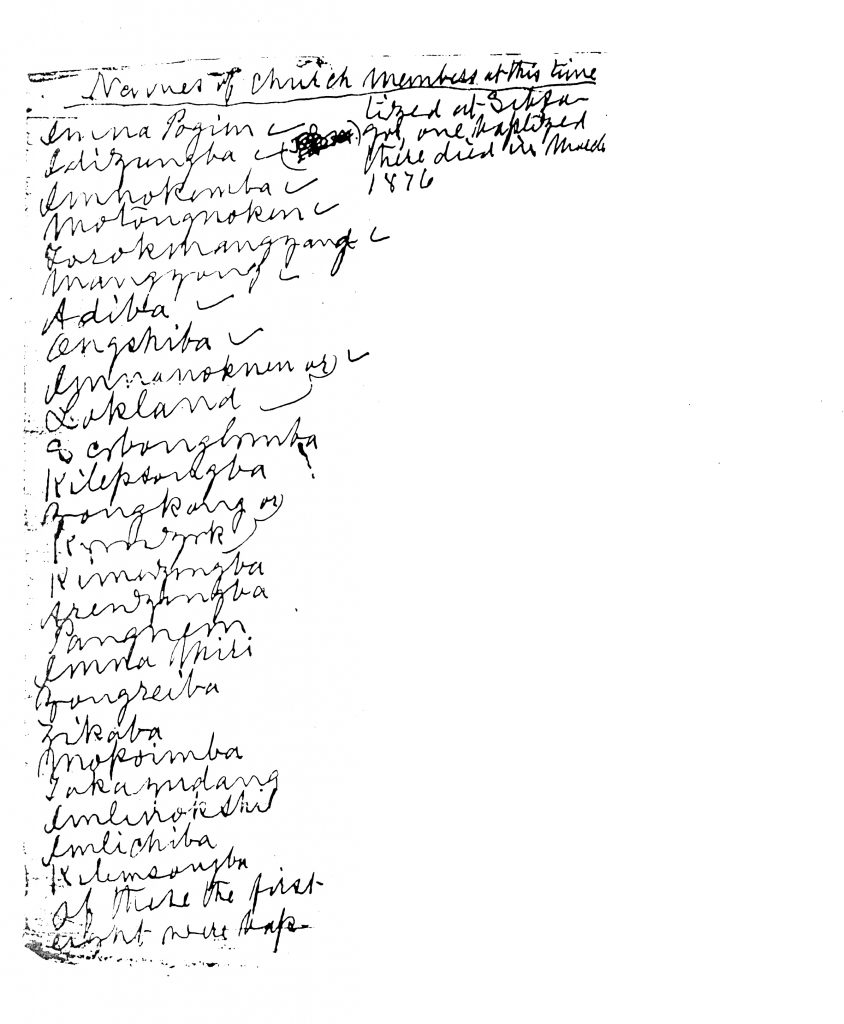 Names of Church Members at this time
Imna Pogim
Idizungba
Imnokemba
Molongnoken
Zorokmangyang
Mangyang
Adiba
Ongshiba
Imnanoknen or
Lokland
Kilepsongba
Zongkong or
Kimezungba
Arenzungba
Pangnem
Imna Miri
Zongreiba
Zikaba
Mopoimba
Takayudang
Imlinokshi
Imlichiba
Kilemsongba
of these the first
eight were bap
tized at Sibsa
gor, one baptized
there died in March
1876